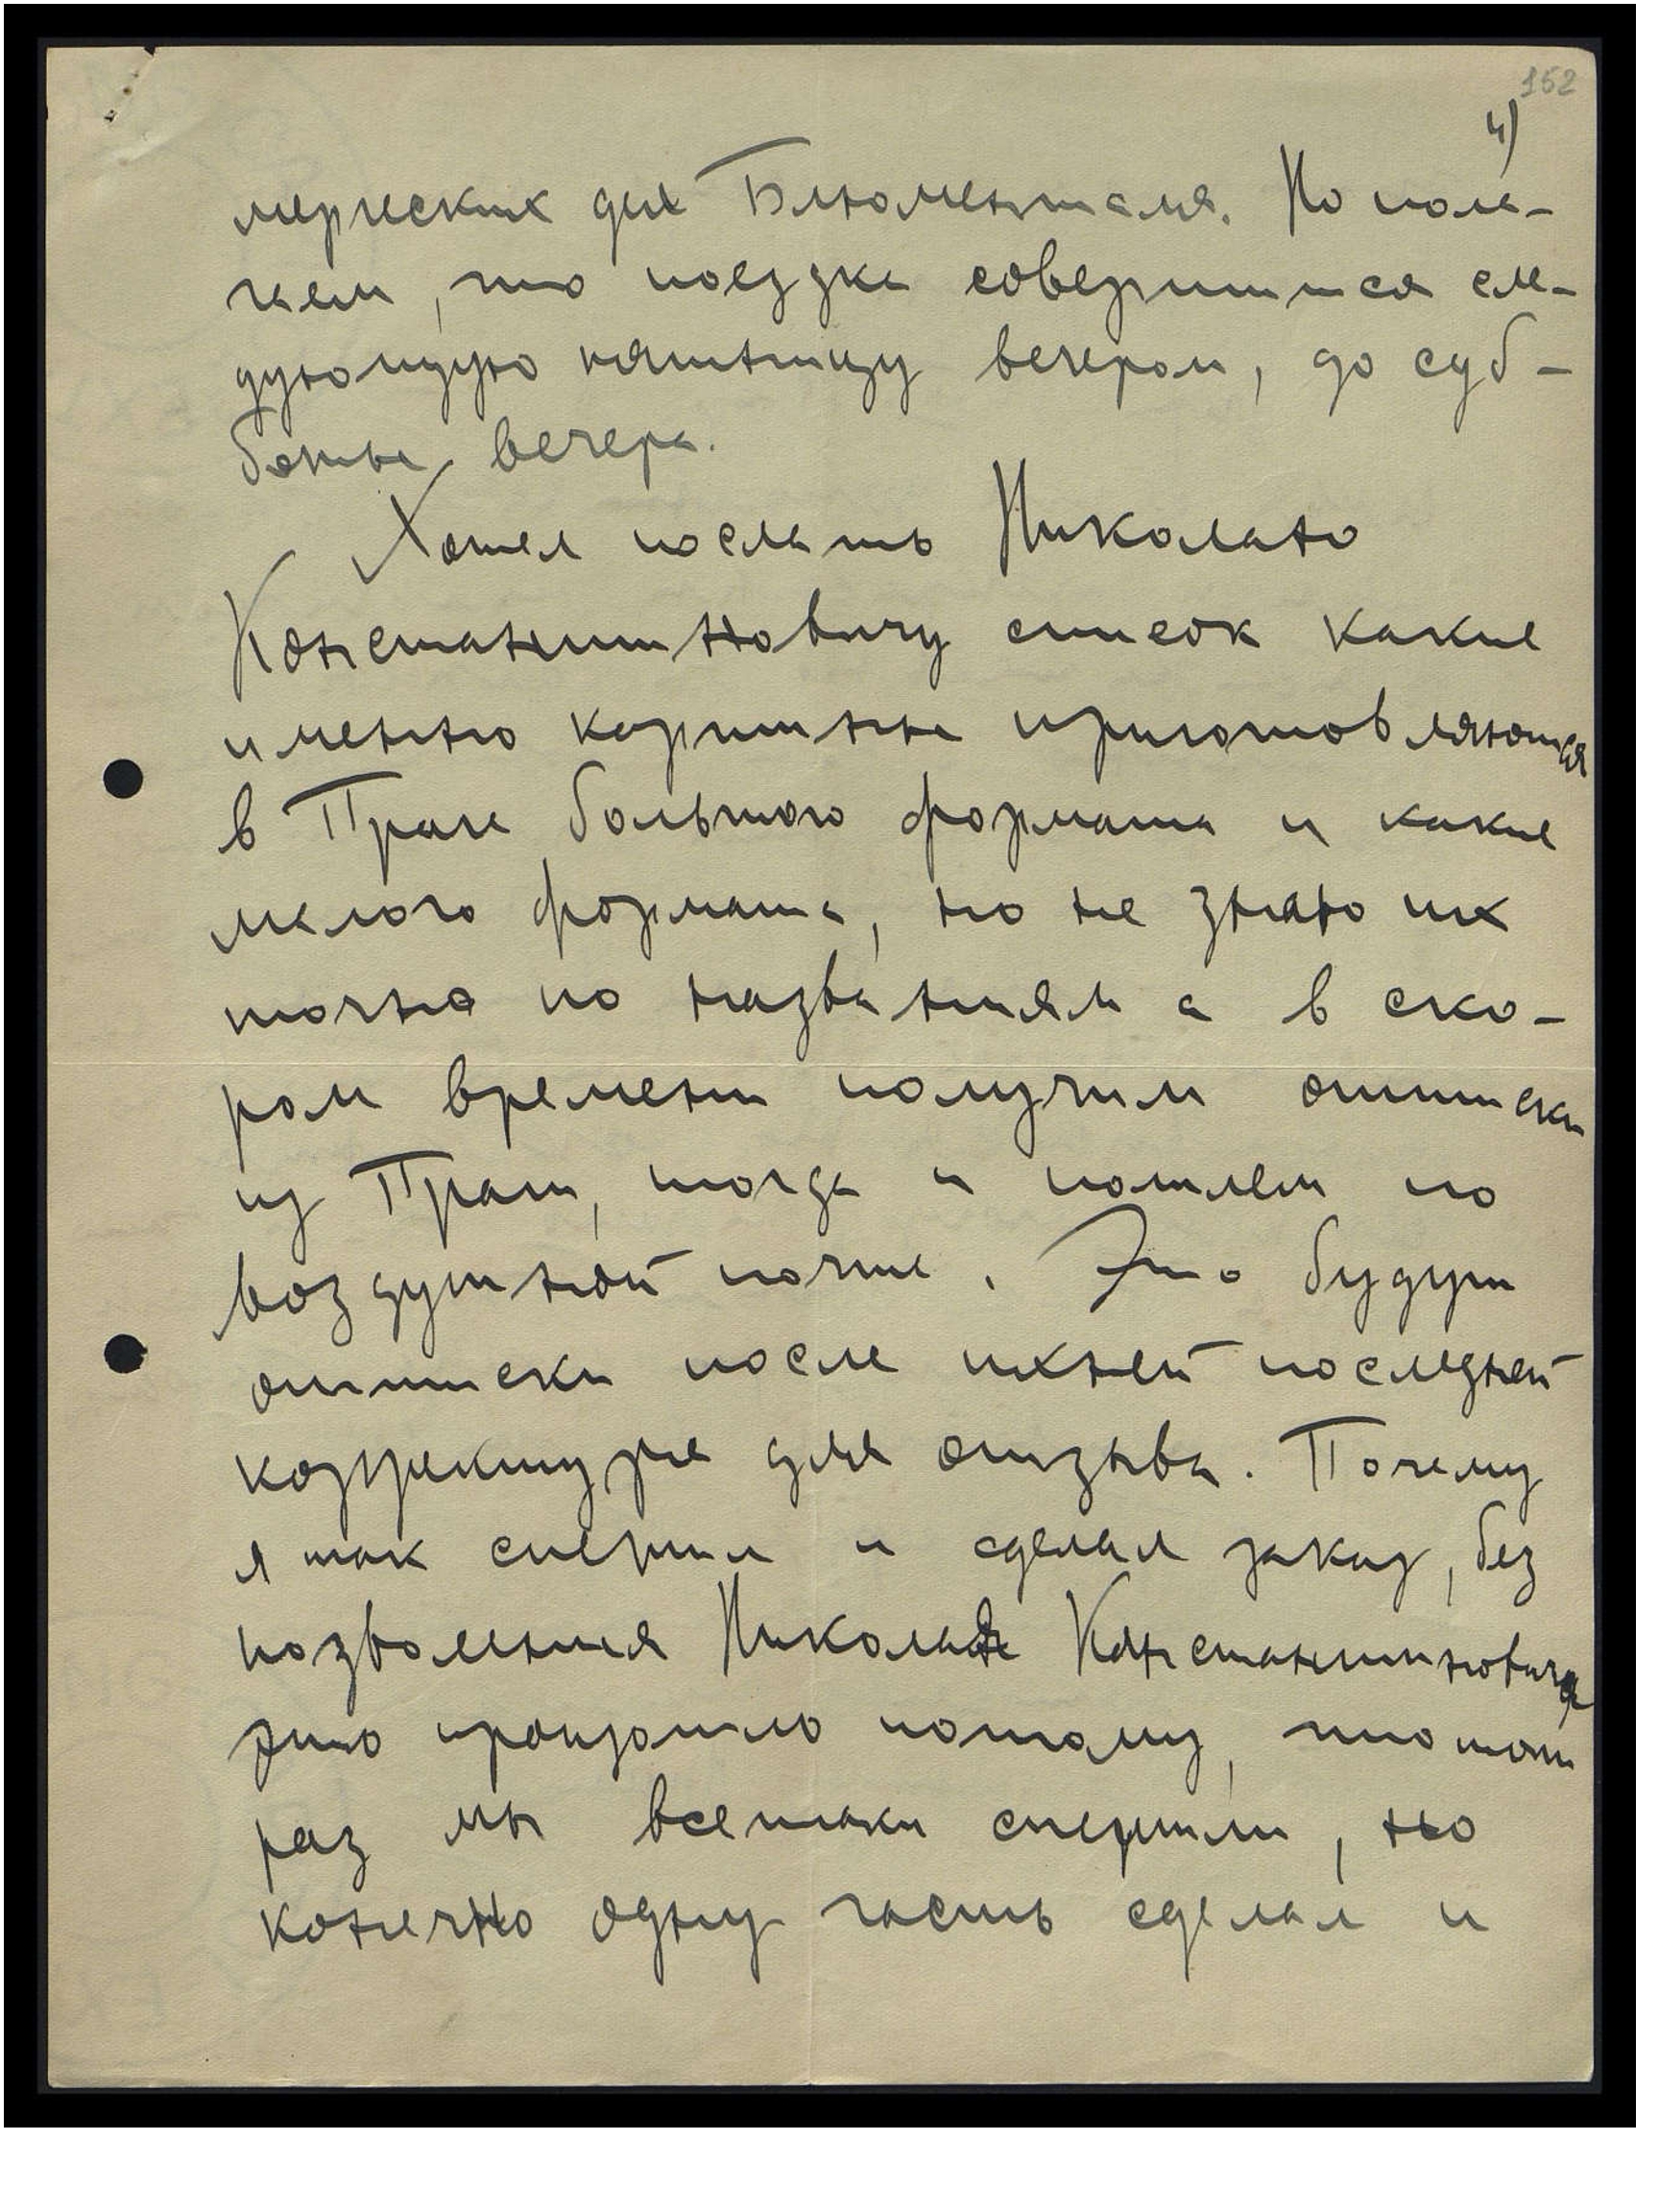 152
4)
мерческих дел Блюменталя. Но пола-
гаем, что поездка совершится сле-
дующую пятницу вечером, до суб-
боты вечера.
Хотел послать Николаю
Константиновичу список какие
именно картины приготовляются
в Праге большого формата и какие
малого формата, но не знаю их
точно по названиям а в ско-
ром времени получим оттиски
из Праги, тогда и пошлем по
воздушной почте. Это будут
оттиски после ихней последней
корректуре для отзыва. Почему
я так спешил и сделал заказ, без
позволения Николая Константиновича
это произошло потому, что тот
раз мы всетаки спешили, но
конечно одну часть сделал и